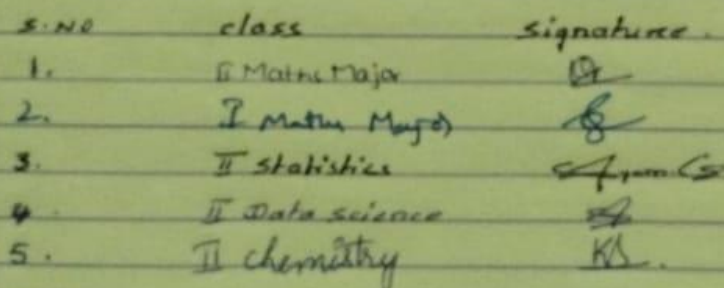 S.NO class signature.
1. II Maths Major
2. I Maths Major
3. II Statistics
4. II Data science
5. II chemistry KS.